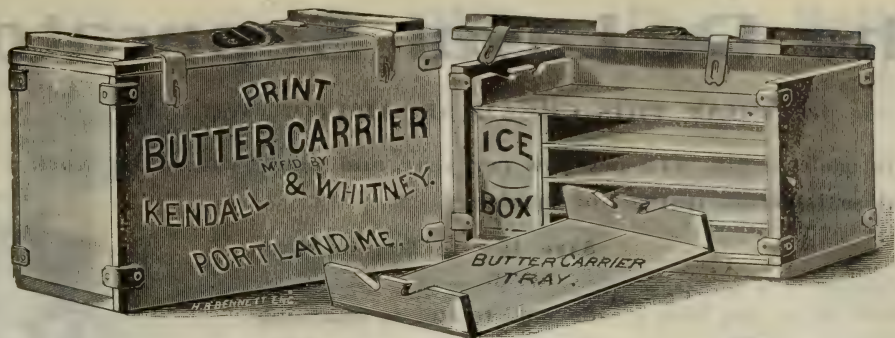 PRINT
BUTTER CARRIER
M'F'D BY
KENDALL & WHITNEY.
PORTLAND, ME.
H. A. BENNETT ENG
ICE
BOX
BUTTER CARRIER
TRAY.